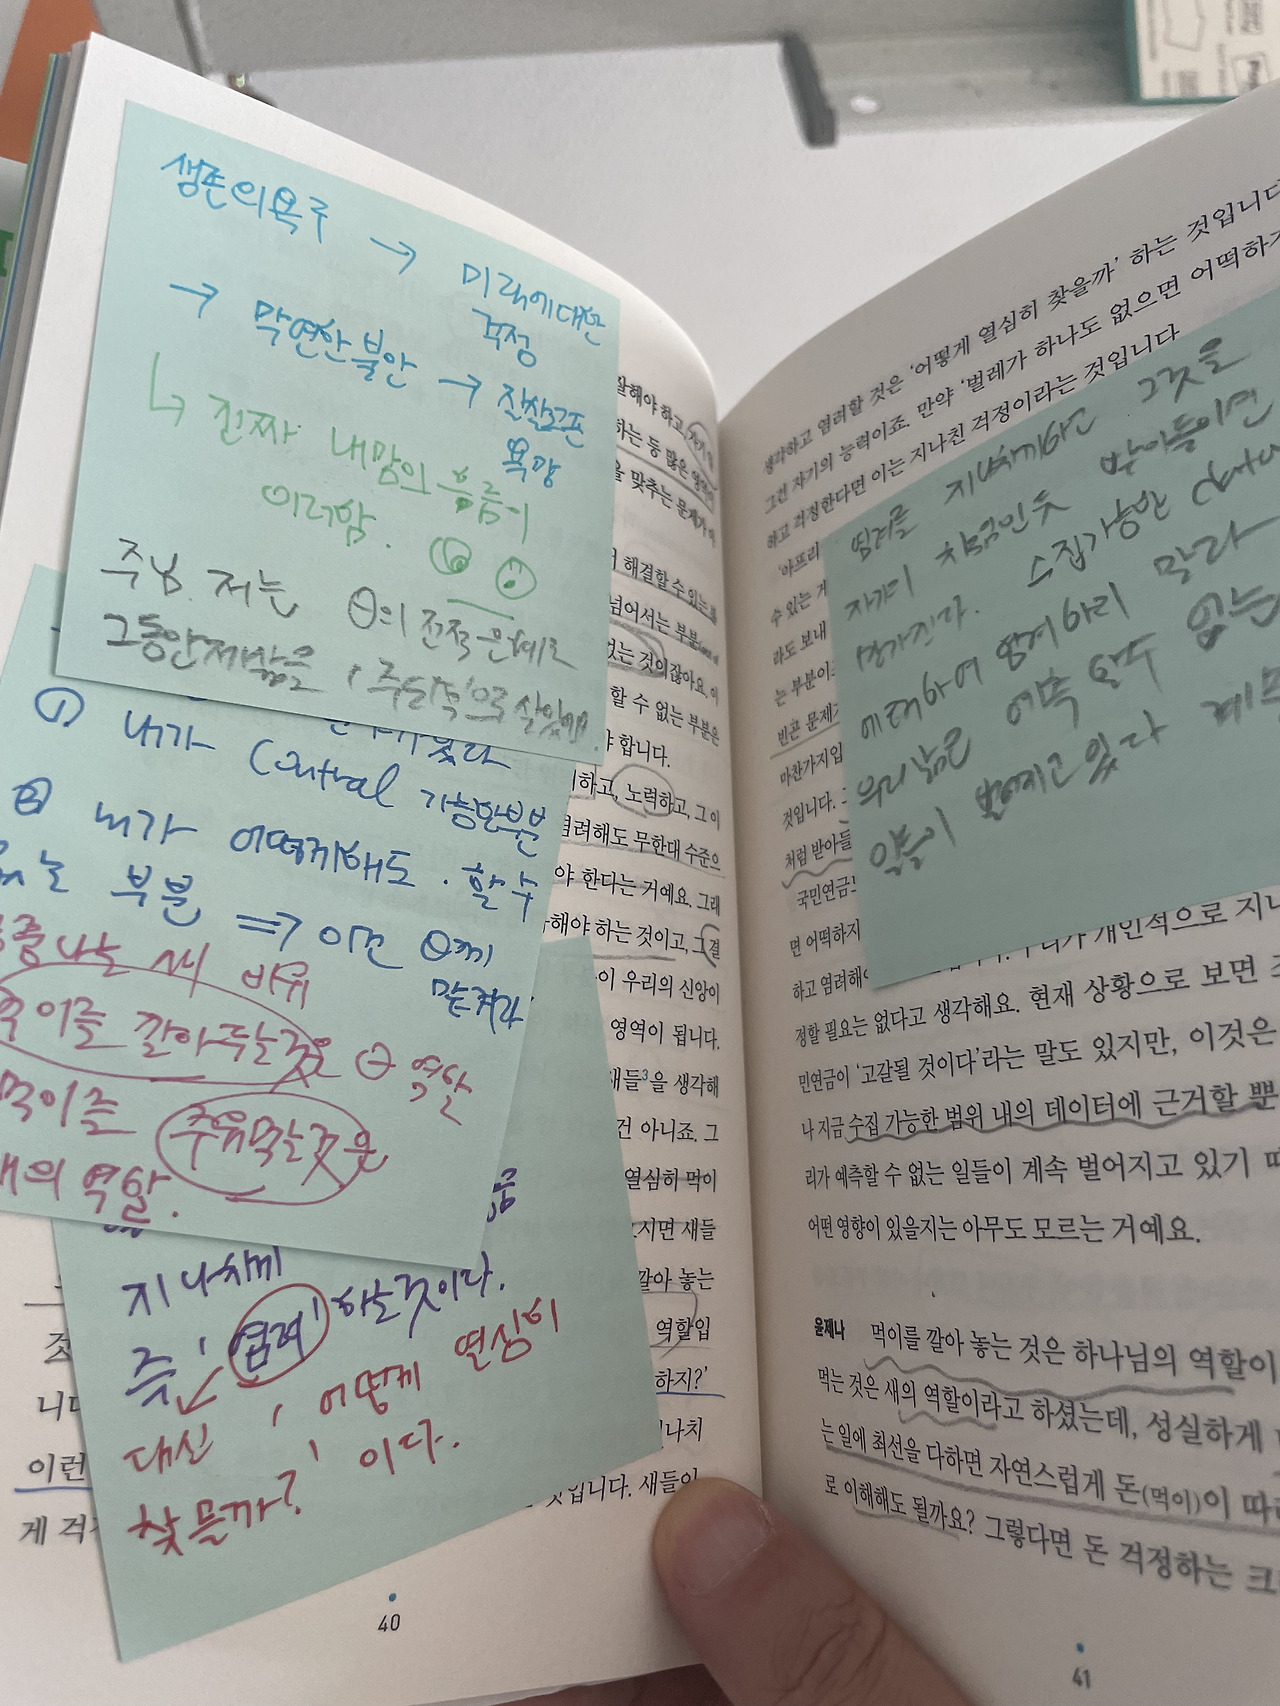 생존의 욕구 → 미래에 대한
걱정
→ 막연한 불안 →
욕망
↳ 진짜 내맘의 흐름이
이러함.
주님. 저는 의 전적 은혜로
그동안 제 삶을 '주도적'으로 살았어요.
① 내가 Control 가능한 부분
② 내가 어떻게해도. 할 수
없는 부분 ⇒ 이건 께
맡겨라
공중나는 새 비유
먹이를 깔아주는것은 역할
먹이를 주워먹는것은
새의 역할.
지나치게
즉, '염려' 하는것이다.
대신, 어떻게 열심히
찾을까?' 이다.
잘해야 하고,
하는 등 많은 영역이
을 맞추는 문제가
해결할 수 있는
넘어서는 부분
없는 것이잖아요. 이
할 수 없는 부분은
야 합니다.
하고, 노력하고, 그 이
염려해도 무한대 수준으
야 한다는 거예요. 그래
해야 하는 것이고, 그 결
이 우리의 신앙이
영역이 됩니다.
새들3을 생각해
건 아니죠. 그
열심히 먹이
시면 새들
깔아 놓는
역할입
하지?'
나치
것
니다
이런
게 걱
것입니다. 새들이
40
생각하고 염려할 것은 '어떻게 열심히 찾을까' 하는 것입니다
그건 자기의 능력이죠. 만약 '벌레가 하나도 없으면 어떡하지
하고 걱정한다면 이는 지나친 걱정이라는 것입니다
'아프리
수 있는 거
라도 보내
는 부분이
빈곤 문제
마찬가지입
것입니다. 그
처럼 받아들
국민연금
면 어떡하지
하고 염려해
염려를 지나치게하고 그것을
자기의 책임인듯 받아들이면
망가진다. 수집가능한 data
에 대하여 염려하리 말라
우리 삶은 예측 할수 없는
일들이 벌어지고 있다
우리가 개인적으로 지나
정할 필요는 없다고 생각해요. 현재 상황으로 보면
민연금이 '고갈될 것이다'라는 말도 있지만, 이것은
나 지금 수집 가능한 범위 내의 데이터에 근거할 뿐
리가 예측할 수 없는 일들이 계속 벌어지고 있기 때
어떤 영향이 있을지는 아무도 모르는 거예요.
윤제나 먹이를 깔아 놓는 것은 하나님의 역할이
먹는 것은 새의 역할이라고 하셨는데, 성실하게
는 일에 최선을 다하면 자연스럽게 돈(먹이)이 따
로 이해해도 될까요? 그렇다면 돈 걱정하는 크
41